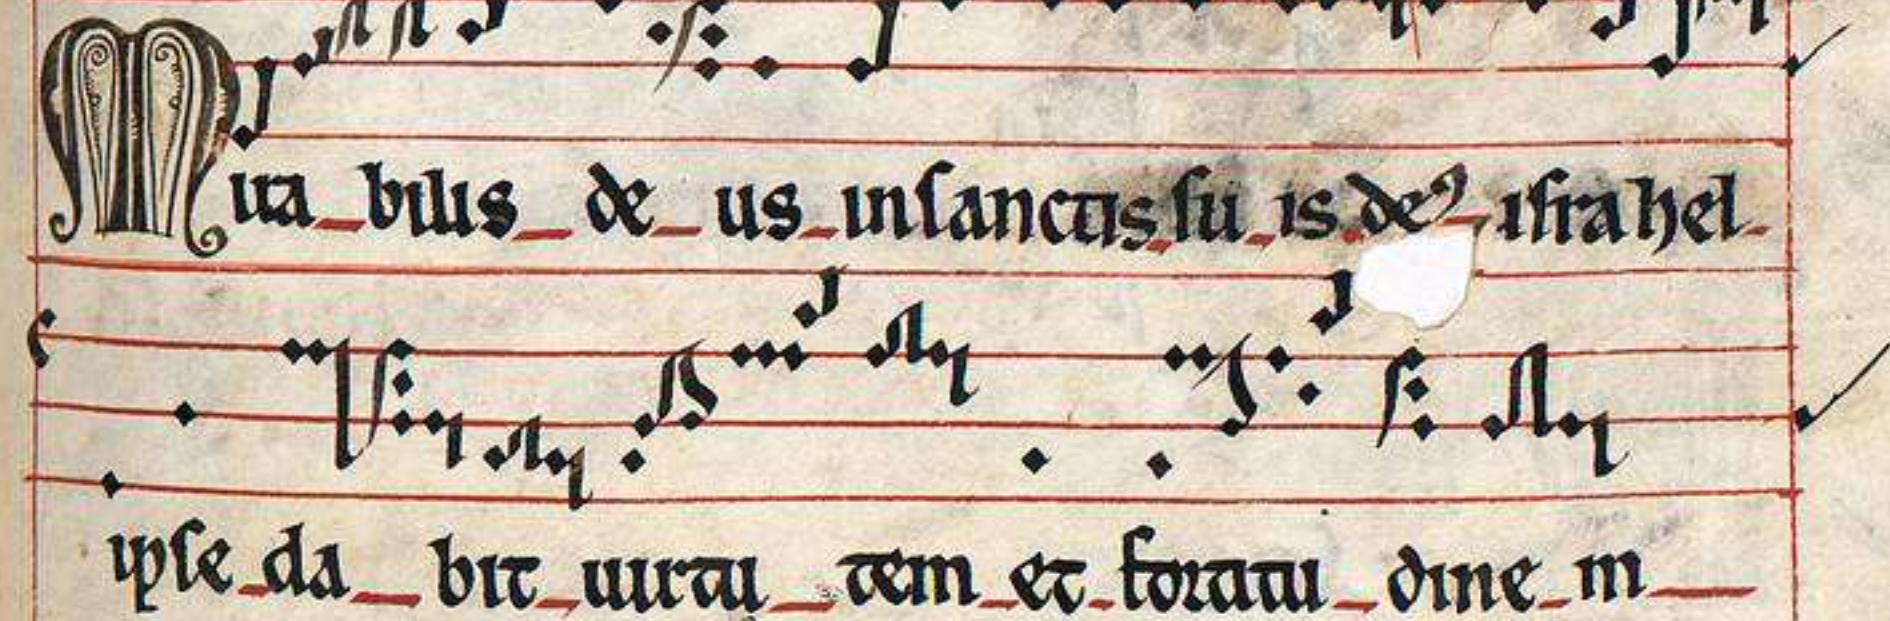 Mira bilis de us in sanctis su is de⁹ israhel
ipse da bit uirtu tem et fortitu dine m